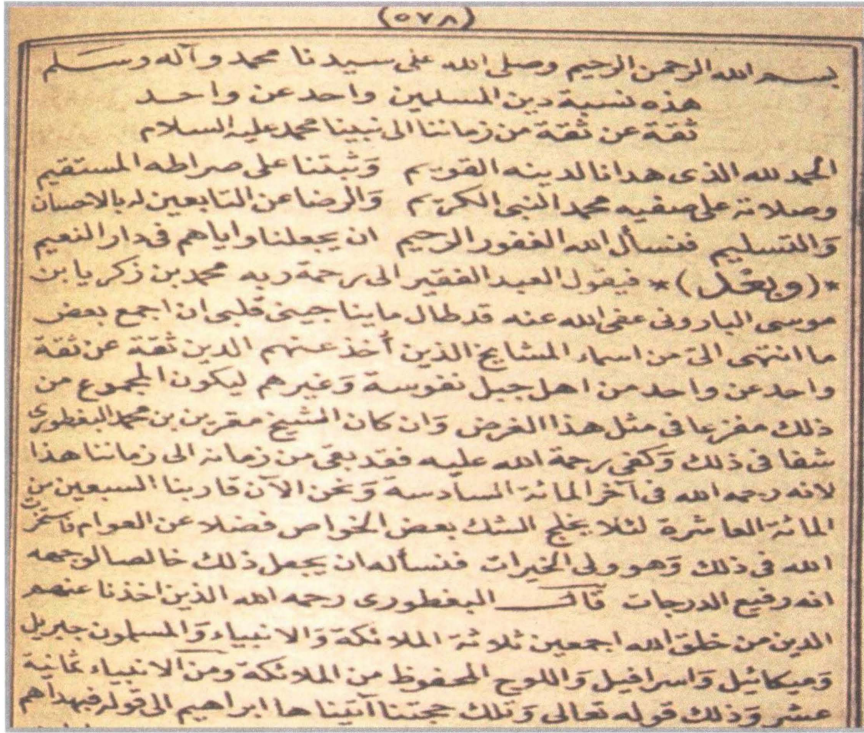 (٥٧٨)
بسم الله الرحمن الرحيم وصلى الله على سيدنا محمد وآله وسلم
هذه نسبة دين المسلمين واحد عن واحد
ثقة عن ثقة من زماننا الى نبينا محمد عليه السلام
الحمد لله الذى هدانا لدينه القويم وثبتنا على صراطه المستقيم
وصلاته على صفيه محمد النبى الكريم والرضا عن التابعين له بالاحسان
والتسليم فنسأل الله الغفور الرحيم ان يجعلنا واياهم فى دار النعيم
*(وبعد)* فيقول العبد الفقير الى رحمة ربه محمد بن زكريا بن
موسى البارونى عفى الله عنه قد طال ما يناجينى قلبى ان اجمع بعض
ما انتهى الىّ من اسماء المشايخ الذين أخذ عنهم الدين ثقة عن ثقة
واحد عن واحد من اهل جبل نفوسة وغيرهم ليكون المجموع من
ذلك مفزعا فى مثل هذا الغرض وان كان الشيخ مقرين بن محمد البغطورى
شفا فى ذلك وكفى رحمة الله عليه فقد بقى من زمانه الى زماننا هذا
لانه رحمه الله فى آخر المائة السادسة ونحن الآن قاربنا السبعين من
المائة العاشرة لئلا يخلج الشك بعض الخواص فضلا عن العوام
الله فى ذلك وهو ولى الخيرات فنسأله ان يجعل ذلك خالصا لوجهه
انه رفيع الدرجات قال البغطورى رحمه الله الذين اخذنا عنهم
الدين من خلق الله اجمعين ثلاثة الملائكة والانبياء والمسلمون جبريل
وميكائيل واسرافيل واللوح المحفوظ من الملائكة ومن الانبياء ثمانية
عشر وذلك قوله تعالى وتلك حجتنا آتيناها ابراهيم الى قوله فبهداهم